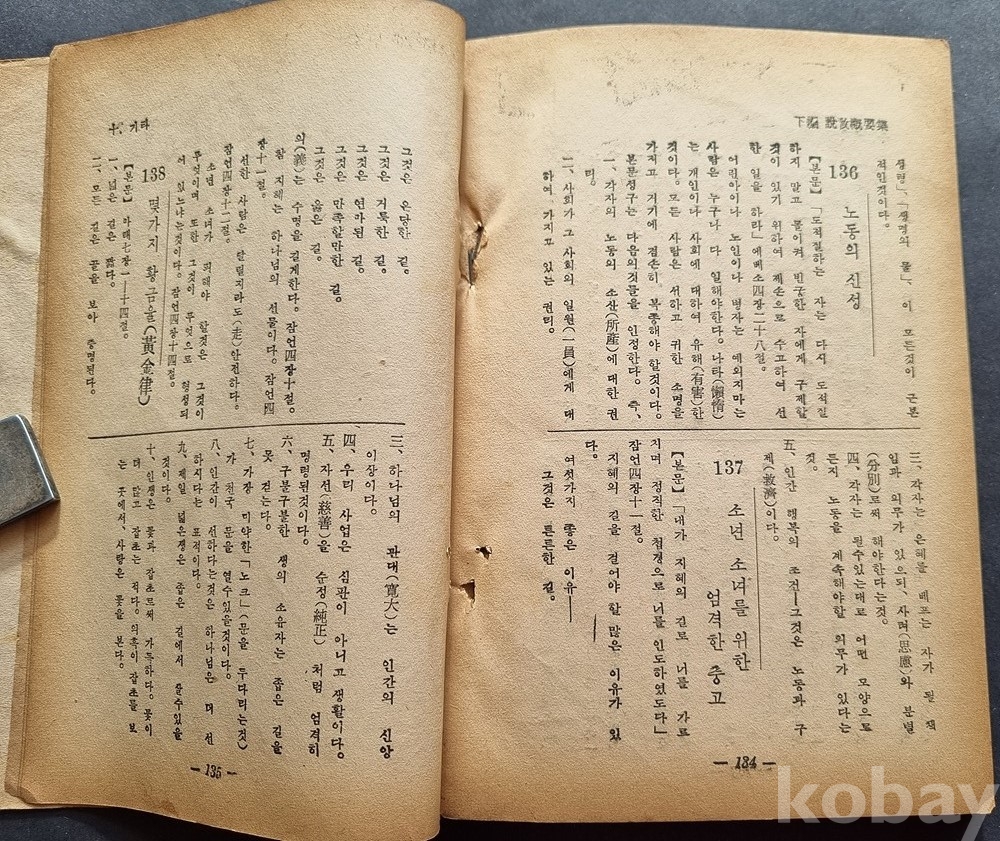 下編 說敎槪要集
생력」、「생명의 물」、이 모든것이 근본
적인것이다。
136 노동의 신성
【본문】「도적질하는 자는 다시 도적질
하지 말고 돌이켜 빈궁한 자에게 구제할
것이 있기 위하여 제손으로 수고하여 선
한 일을 하라」에베소四장二十八절。
어린아이나 노인이나 병자는 예외지마는
사람은 누구나 다 일해야한다。나타(懶惰)
는 개인이나 사회에 대하여 유해(有害)한
것이다。모든 사람은 선하고 귀한 소명을
가지고 거기에 겸손히 복종해야 할것이다。
본문성구는 다음의것들을 인정한다。즉、
一、각자의 노동의 소산(所產)에 대한 권
리。
二、사회가 그 사회의 일원(一員)에게 대
하여 가지고 있는 권리。
三、각자는 은혜를 베프는 자가 될 책
임과 의무가 있으되、사려(思慮)와 분별
(分別)로써 해야한다는것。
四、각자는 될수있는대로 어떤 모양으로
든지 노동을 계속해야할 의무가 있다는
것。
五、인간 행복의 조건—그것은 노동과 구
제(救濟)이다。
137 소년 소녀를 위한
엄격한 충고
【본문】「내가 지혜의 길로 너를 가르
지며 정직한 첩경으로 너를 인도하였도다」
잠언四장十一절。
지혜의 길을 걸어야 할 많은 이유가 있
다。
여섯가지 좋은 이유——
그것은 튼튼한 길。
— 134 —
十、기타
그것은 온당한 길。
그것은 거룩한 길。
그것은 연마된 길。
그것은 만족할만한 길。
그것은 옳은 길。
의(義)는 수명을 길게한다。잠언四장十절。
참 지혜는 하나님의 선물이다。잠언四
장十一절。
선한 사람은 달릴지라도(走)안전하다。
잠언四장十二절。
소년 소녀가 피해야 할것은 그것이
무엇이며 또한 그것이 무엇으로 형성되
어 있느냐는것이다。잠언四장十四절。
138 몇가지 황금율(黃金律)
【본문】마태七장一—十四절。
一、넓은 길은 짧다。
二、모든 길은 끝을 보아 증명된다。
三、하나님의 관대(寬大)는 인간의 신앙
이상이다。
四、우리 사업은 심판이 아니고 생활이다。
五、자선(慈善)을 순정(純正) 처럼 엄격히
명령된것이다。
六、구불구불한 생의 소유자는 좁은 길을
못 걷는다。
七、가장 미약한「노크」(문을 두다리는것)
가 천국 문을 열수있을것이다。
八、인간이 선하다는것은 하나님은 더 선
하시다는 표적이다。
九、제일 넓은생은 좁은 길에서 살수있을
것이다。
十、인생은 꽃과 잡초로써 가득하다。꽃이
더 많고 잡초는 적다。의혹이 잡초를 보
는 곳에서、사랑은 꽃을 본다。
— 135 —
kobay